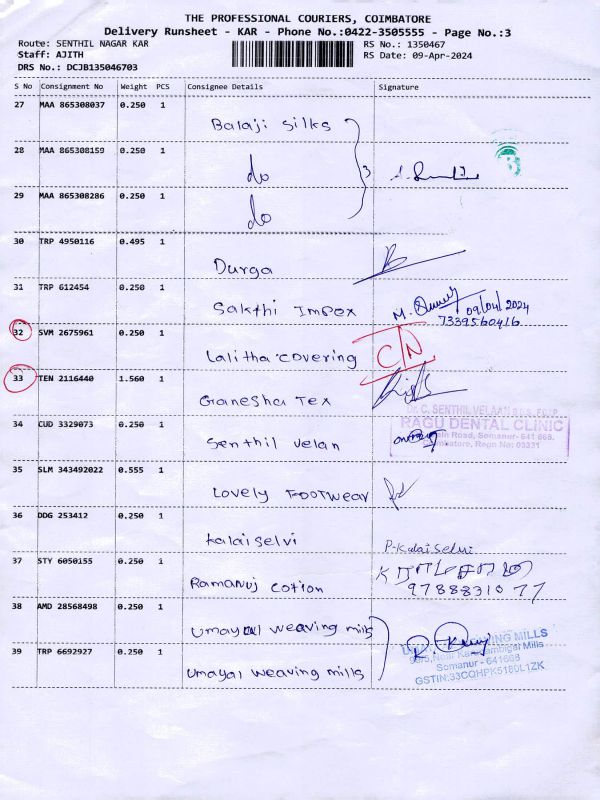 THE PROFESSIONAL COURIERS, COIMBATORE
Delivery Runsheet - KAR - Phone No.:0422-3505555 - Page No.:3
Route: SENTHIL NAGAR KAR RS No.: 1350467
Staff: AJITH RS Date: 09-Apr-2024
DRS No.: DCJB135046703
S No Consignment No Weight PCS Consignee Details Signature
27 MAA 865308037 0.250 1 Balaji silks
28 MAA 865308159 0.250 1 do 3
29 MAA 865308286 0.250 1 do
30 TRP 4950116 0.495 1 Durga
31 TRP 612454 0.250 1 Sakthi Impex M. 09/04/2024
7339560416
32 SVM 2675961 0.250 1 Lalitha covering CN
33 TEN 2116440 1.560 1 Ganesha Tex
34 CUD 3329073 0.250 1 Senthil velan
Dr. C. SENTHIL VELAN
RAGU DENTAL CLINIC
Main Road, Somanur - 641 668.
Coimbatore, Regn No: 03331
35 SLM 343492022 0.555 1 Lovely Footwear
36 DDG 253412 0.250 1 Kalaiselvi P-Kalaiselvi
37 STY 6050155 0.250 1 Ramanuj cotion
9788831077
38 AMD 28568498 0.250 1 Umayal weaving mills
39 TRP 6692927 0.250 1 Umayal weaving mills
WEAVING MILLS
Mills
Somanur - 641668
GSTIN:33CQHPK5180L1ZK